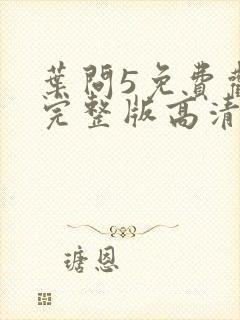 葉問5免費
完整版高清
瑭恩